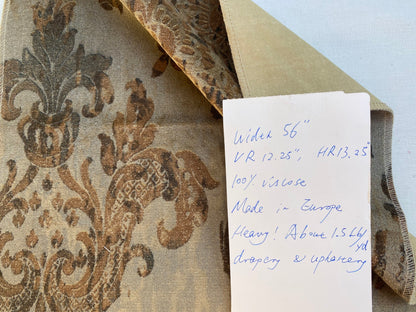 Width 56"
VR 12.25", HR 13.25"
100% viscose
Made in Europe
Heavy! Above 1.5 lb/yd
drapery & upholstery